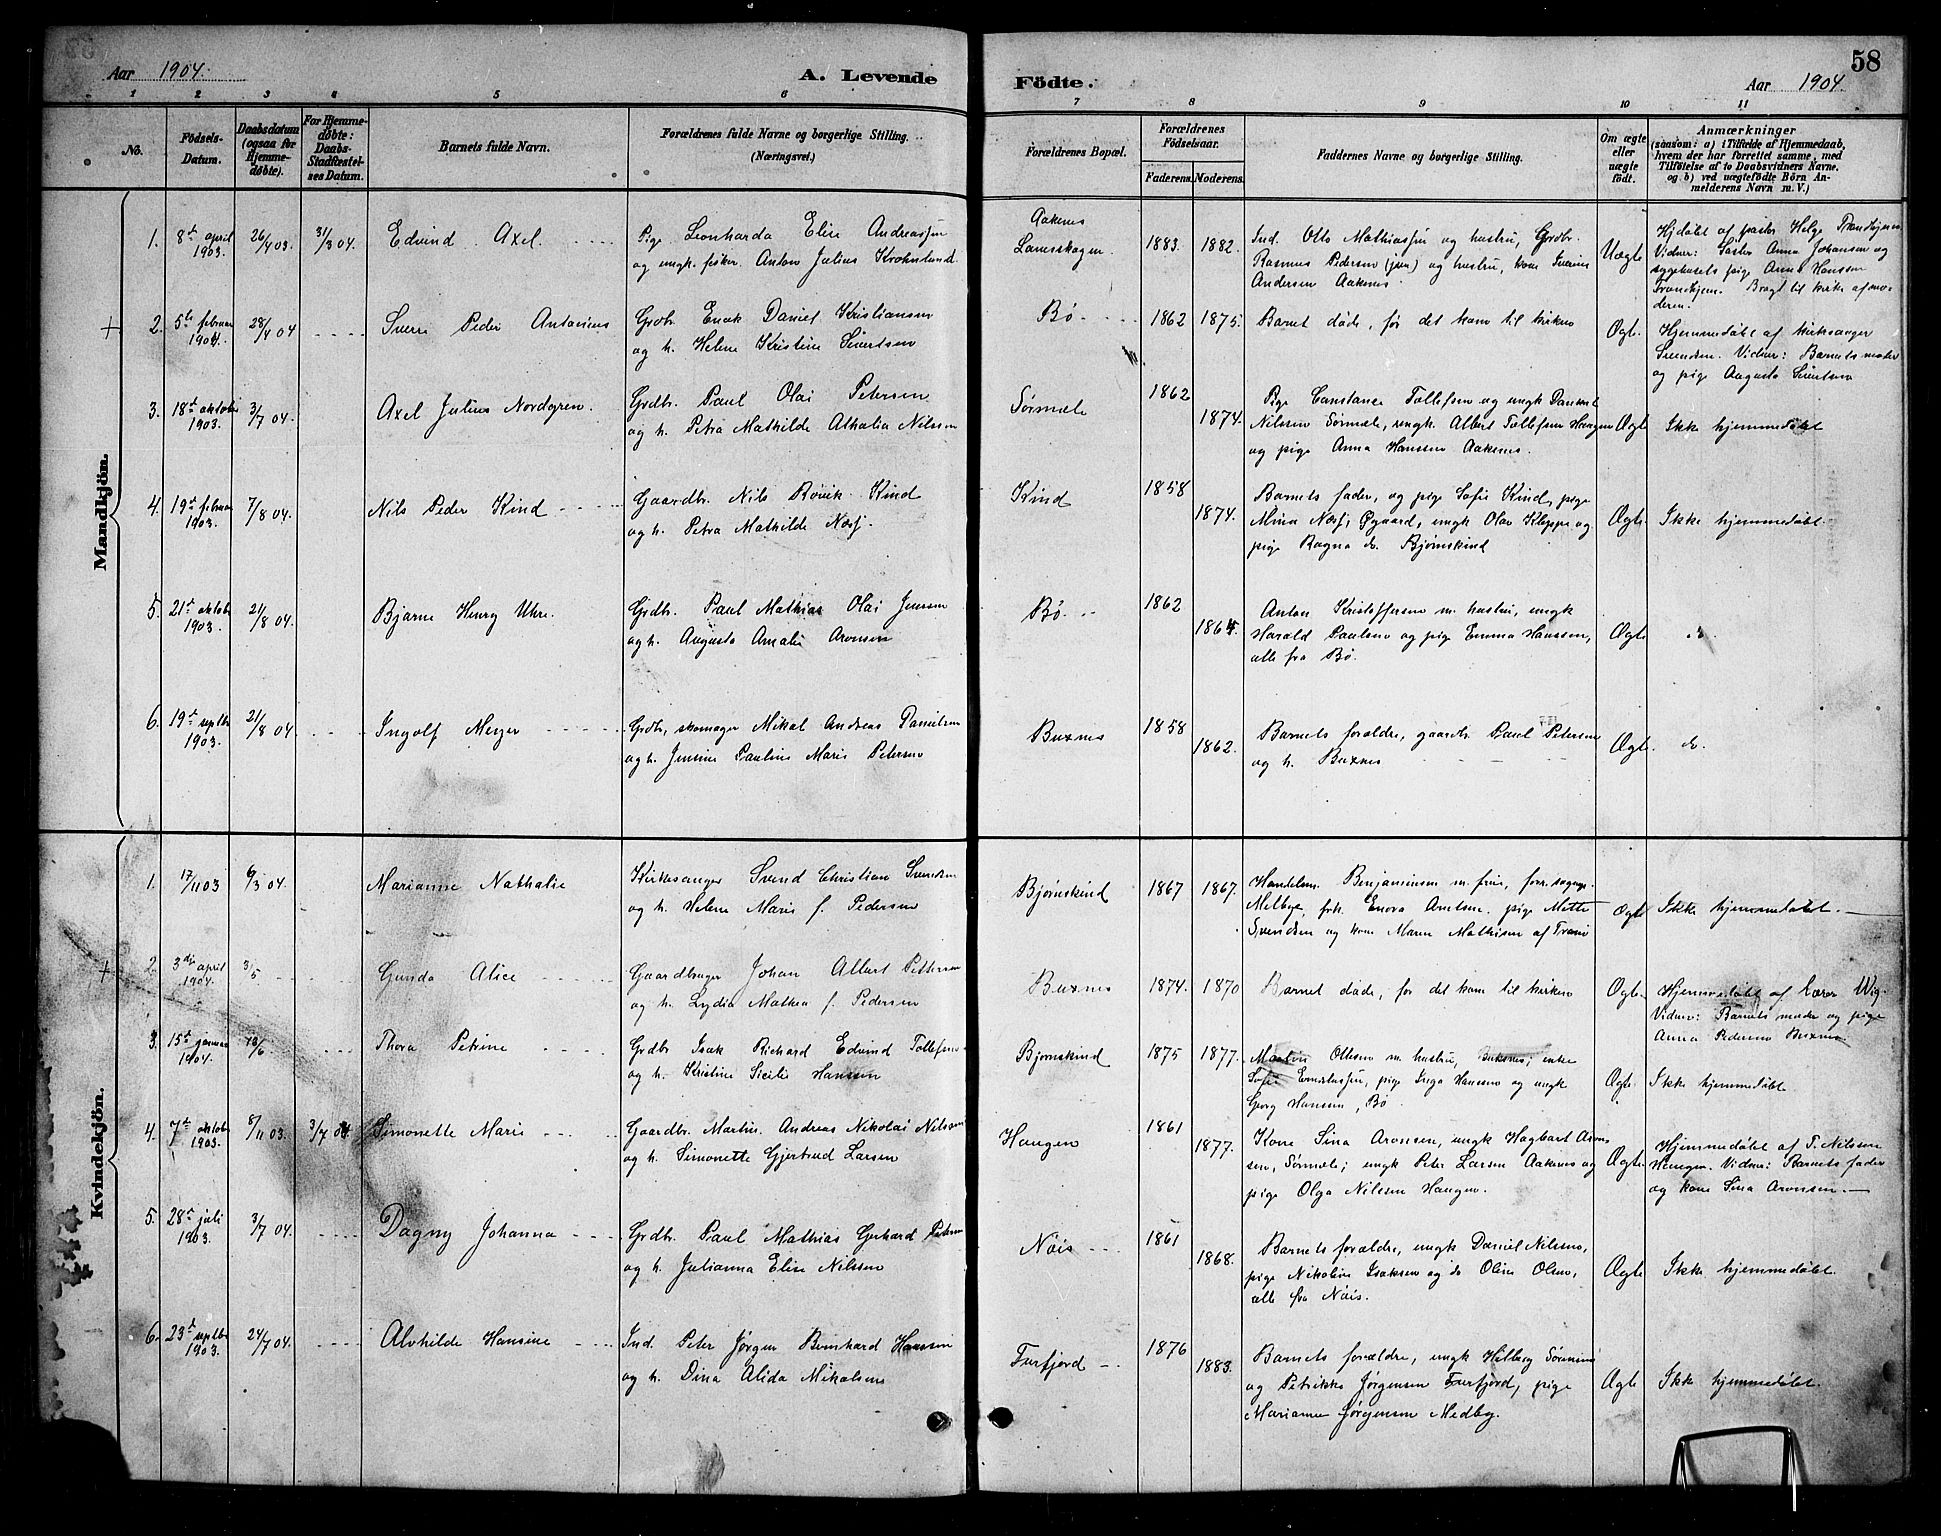 Aar 1904.
A. Levende
Födte.
Aar 1904.
58
1 2 3 4 5 6 7 8 9 10 11
No.
Födsels-
Datum.
Daabsdatum
(ogsaa for
Hjemme-
døbte).
For Hjemme-
døbte:
Daabs-
Stadfæstel-
ses Datum.
Barnets fulde Navn.
Forældrenes fulde Navne og borgerlige Stilling.
(Næringsvei.)
Forældrenes Bopæl.
Forældrenes
Födselsaar.
Faderens. Moderens.
Faddernes Navne og borgerlige Stilling.
Om ægte
eller
uægte
födt.
Anmærkninger
(saasom: a) i Tilfælde af Hjemmedaab,
hvem der har forrettet samme, med
Tilföielse af to Daabsvidners Navne.
og b) ved uægtefødte Börn An-
melderens Navn m. V.)
Mandkjön.
1. 8de april 1903. 26/4 03. 31/3 04. Edvind Axel.
Pige Leonharda Elise Andreassen
og ungk. fisker Anton Julius Krohnlund.
Aakenes
Lanesskogen. 1883. 1882.
Ind. Otto Mathiassen og hustru, Grdbr.
Rasmus Pedersen (jun) og hustru, kone
Andersen Aakenes.
Uægte
Hjdøbt af Helge Trondhjem
Vidner: Søster Anna Johansen og
sygehusets pige Anna Hanssen
Trondhjem. Bragt til kirke af mo-
deren.
+ 2. 5te februar 1904. 28/4 04 Sverre Peder Antonius
Grdbr. Enok Daniel Kristiansen
og h. Helene Kristine Sivertsen
Bø 1862 1875.
Barnet døde, før det kom til kirken
Ægte.
Hjemmedøbt af kirkesanger
Svendsen. Vidner: Barnets moder
og pige Augusta Sivertsen
3. 18de oktober 1903. 3/7 04. Axel Julius Nordgren.
Grdbr. Paul Olai Petersen
og h. Petra Mathilde Athalia Nilssen
Sørmæle 1862 1874.
Pige Constance Tollefsen og ungk Daniel
Nilssen Sørmæle, ungk. Albert Tollefsen Haugen
og pige Anna Hanssen Aakenes.
Ægte
Ikke hjemmedøbt
4. 19de februar 1903. 7/8 04. Nils Peder Kind
Gaardbr. Nils Røvik Kind
og h. Petra Mathilde Næsj.
Kind 1858 1874.
Barnets fader, og pige Sofie Kind, pige
Mina Næsj, Øgaard, ungk Olav Kleppe og
pige Ragna do. Bjørnskind
Ægte.
Ikke hjemmedøbt.
5. 21de oktober 1903. 21/8 04. Bjarne Henry Uhre.
Grdbr. Paul Mathias Olai Jenssen
og h. Augusta Amalie Aronsen
Bø. 1862 1864.
Anton Kristoffersen m. hustru, ungk
Harald Paulsen og pige Emma Hanssen,
alle fra Bø.
Ægte
do.
6. 19de septbr 1903. 21/8 04 Ingolf Meyer
Grdbr, skomager Mikal Andreas Danielsen
og h. Jensine Pauline Marie Petersen
Buxnes 1858 1862.
Barnets forældre, gaardbr. Paul Petersen
og h. Buxnes
Ægte.
do.
Kvindekjön.
1. 17/11 03 6/3 04. Marianne Nathalie
Kirkesanger Svend Christian Svendsen
og h. Helene Marie f. Pedersen
Bjørnskind 1867 1867.
Handelsm. Benjaminsen m. frue,
Melbye, frk. Enora Arntsen. pige Mette
Svendsen og kone Maren Mathisen af Tranø
Ægte
Ikke hjemmedøbt.
+ 2. 3die april 1904. 3/5 Gunda Alice
Gaardbruger Johan Albert Pettersen
og h. Lydia Mathea f. Pedersen
Buxnes 1874. 1870
Barnet døde, før det kom til kirken
Ægte.
Hjemmedøbt af lærer Wig.
Vidner: Barnets moder og pige
Anna Pedersen Buxnes.
3. 15de januar 1904. /6. Thora Petrine
Grdbr Isak Richard Edvind Tollefsen
og h. Kristine Sicilie Hanssen
Bjørnskind 1875 1877.
Martin Ottesen m. hustru, enke
Sofie pige Inga Hanssen og ungk
Georg Hanssen, Bø
Ægte.
Ikke hjemmedøbt.
4. 7de oktober 1903. 8/11 03. 3/7 04 Simonette Marie
Gaardbr. Martin Andreas Nikolai Nilssen
og h. Simonette Gjertrud Larsen
Haugen 1861 1877.
Kone Sina Aronsen, ungk Hagbart Aron-
sen, Sørmæle; ungk Peter Larsen Aakenes og
pige Olga Nilssen Haugen.
Ægte.
Hjemmedøbt af T. Nilssen
Haugen. Vidner: Barnets fader
og kone Sina Aronsen.
5. 28de juli 1903. 3/7 04. Dagny Johanna
Grdbr. Paul Mathias Gerhard Petersen
og h. Julianna Elise Nilssen
Nøis 1861 1868.
Barnets forældre, ungk Daniel Nilssen,
pige Nikoline Isaksen og do Oline Olsen,
alle fra Nøis.
Ægte
Ikke hjemmedøbt.
6. 23de septbr 1903. 24/7 04. Alvhilde Hansine
Ind. Peter Jørgen Bernhard Hanssen
og h. Dina Alida Mikalsen
Furfjord 1876 1883.
Barnets forældre, ungk Hilberg Sørensen
og Petrikke Jørgensen Furfjord, pige
Marianne Jørgensen Medby.
Ægte
Ikke hjemmedøbt.